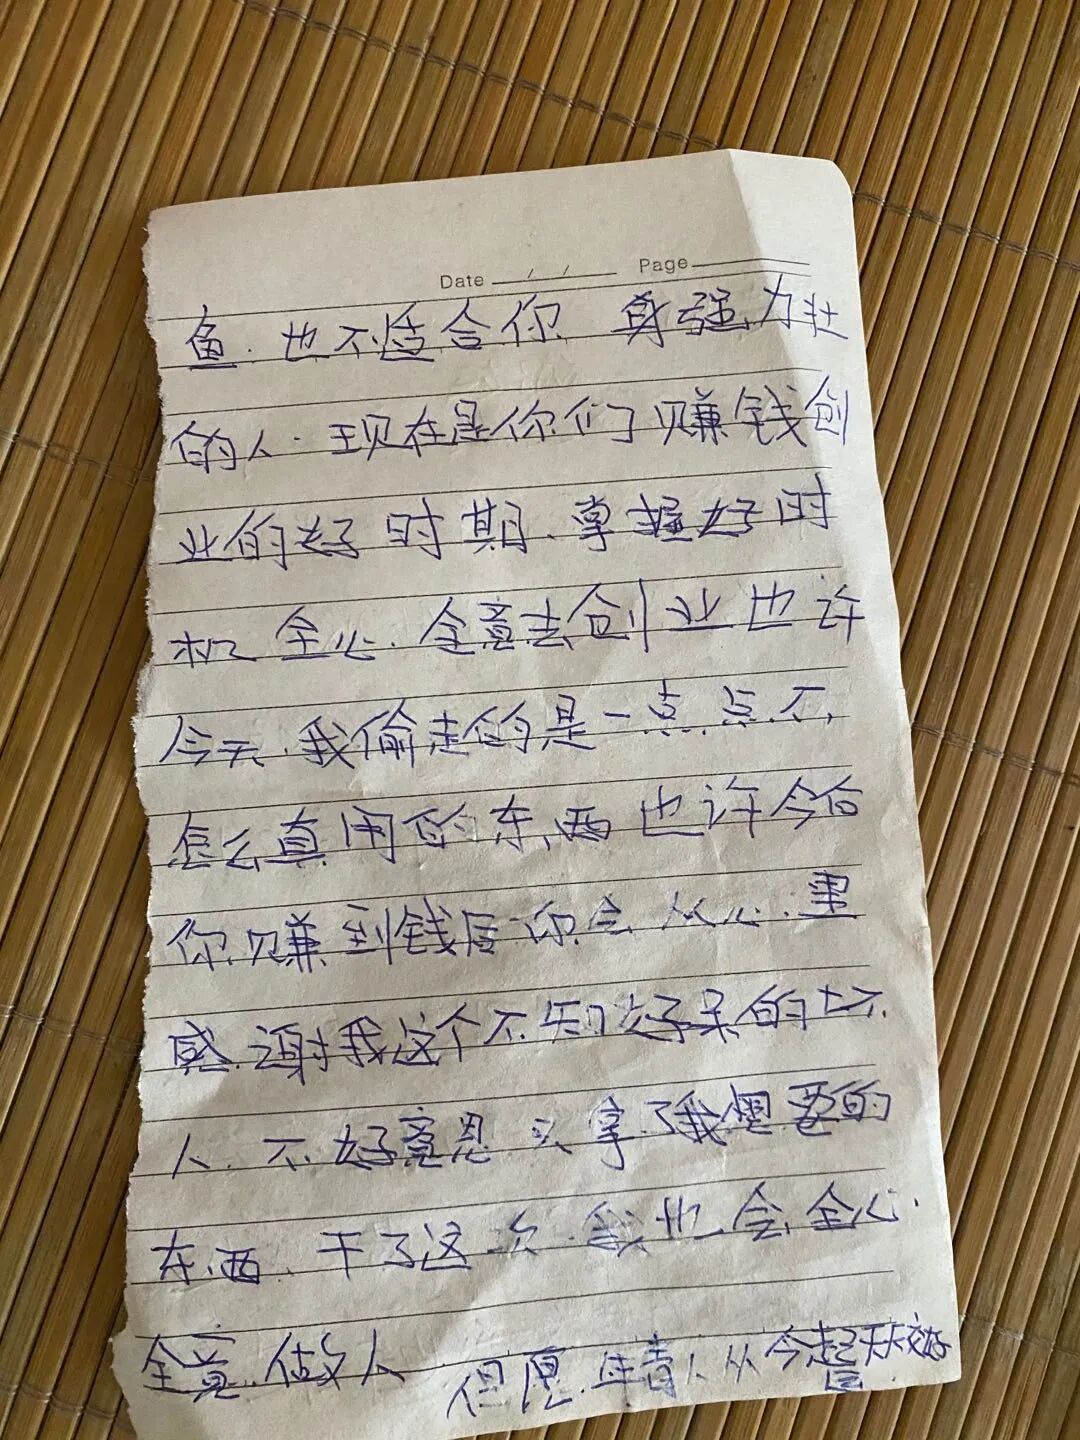 Date / / Page
鱼.也不适合你 身强力壮
的人.现在是你们赚钱创
业的好时期.掌握好时
机 全心.全意去创业也许
今天.我偷走的是一点点不
怎么真用的东西也许今后
你赚到钱后你会从心里
感谢我这个不知好呆的坏
人.不好意思 拿了我想要的
东西.干了这次 我也会全心.
全意.做人 但愿.年青人从今起天天交好